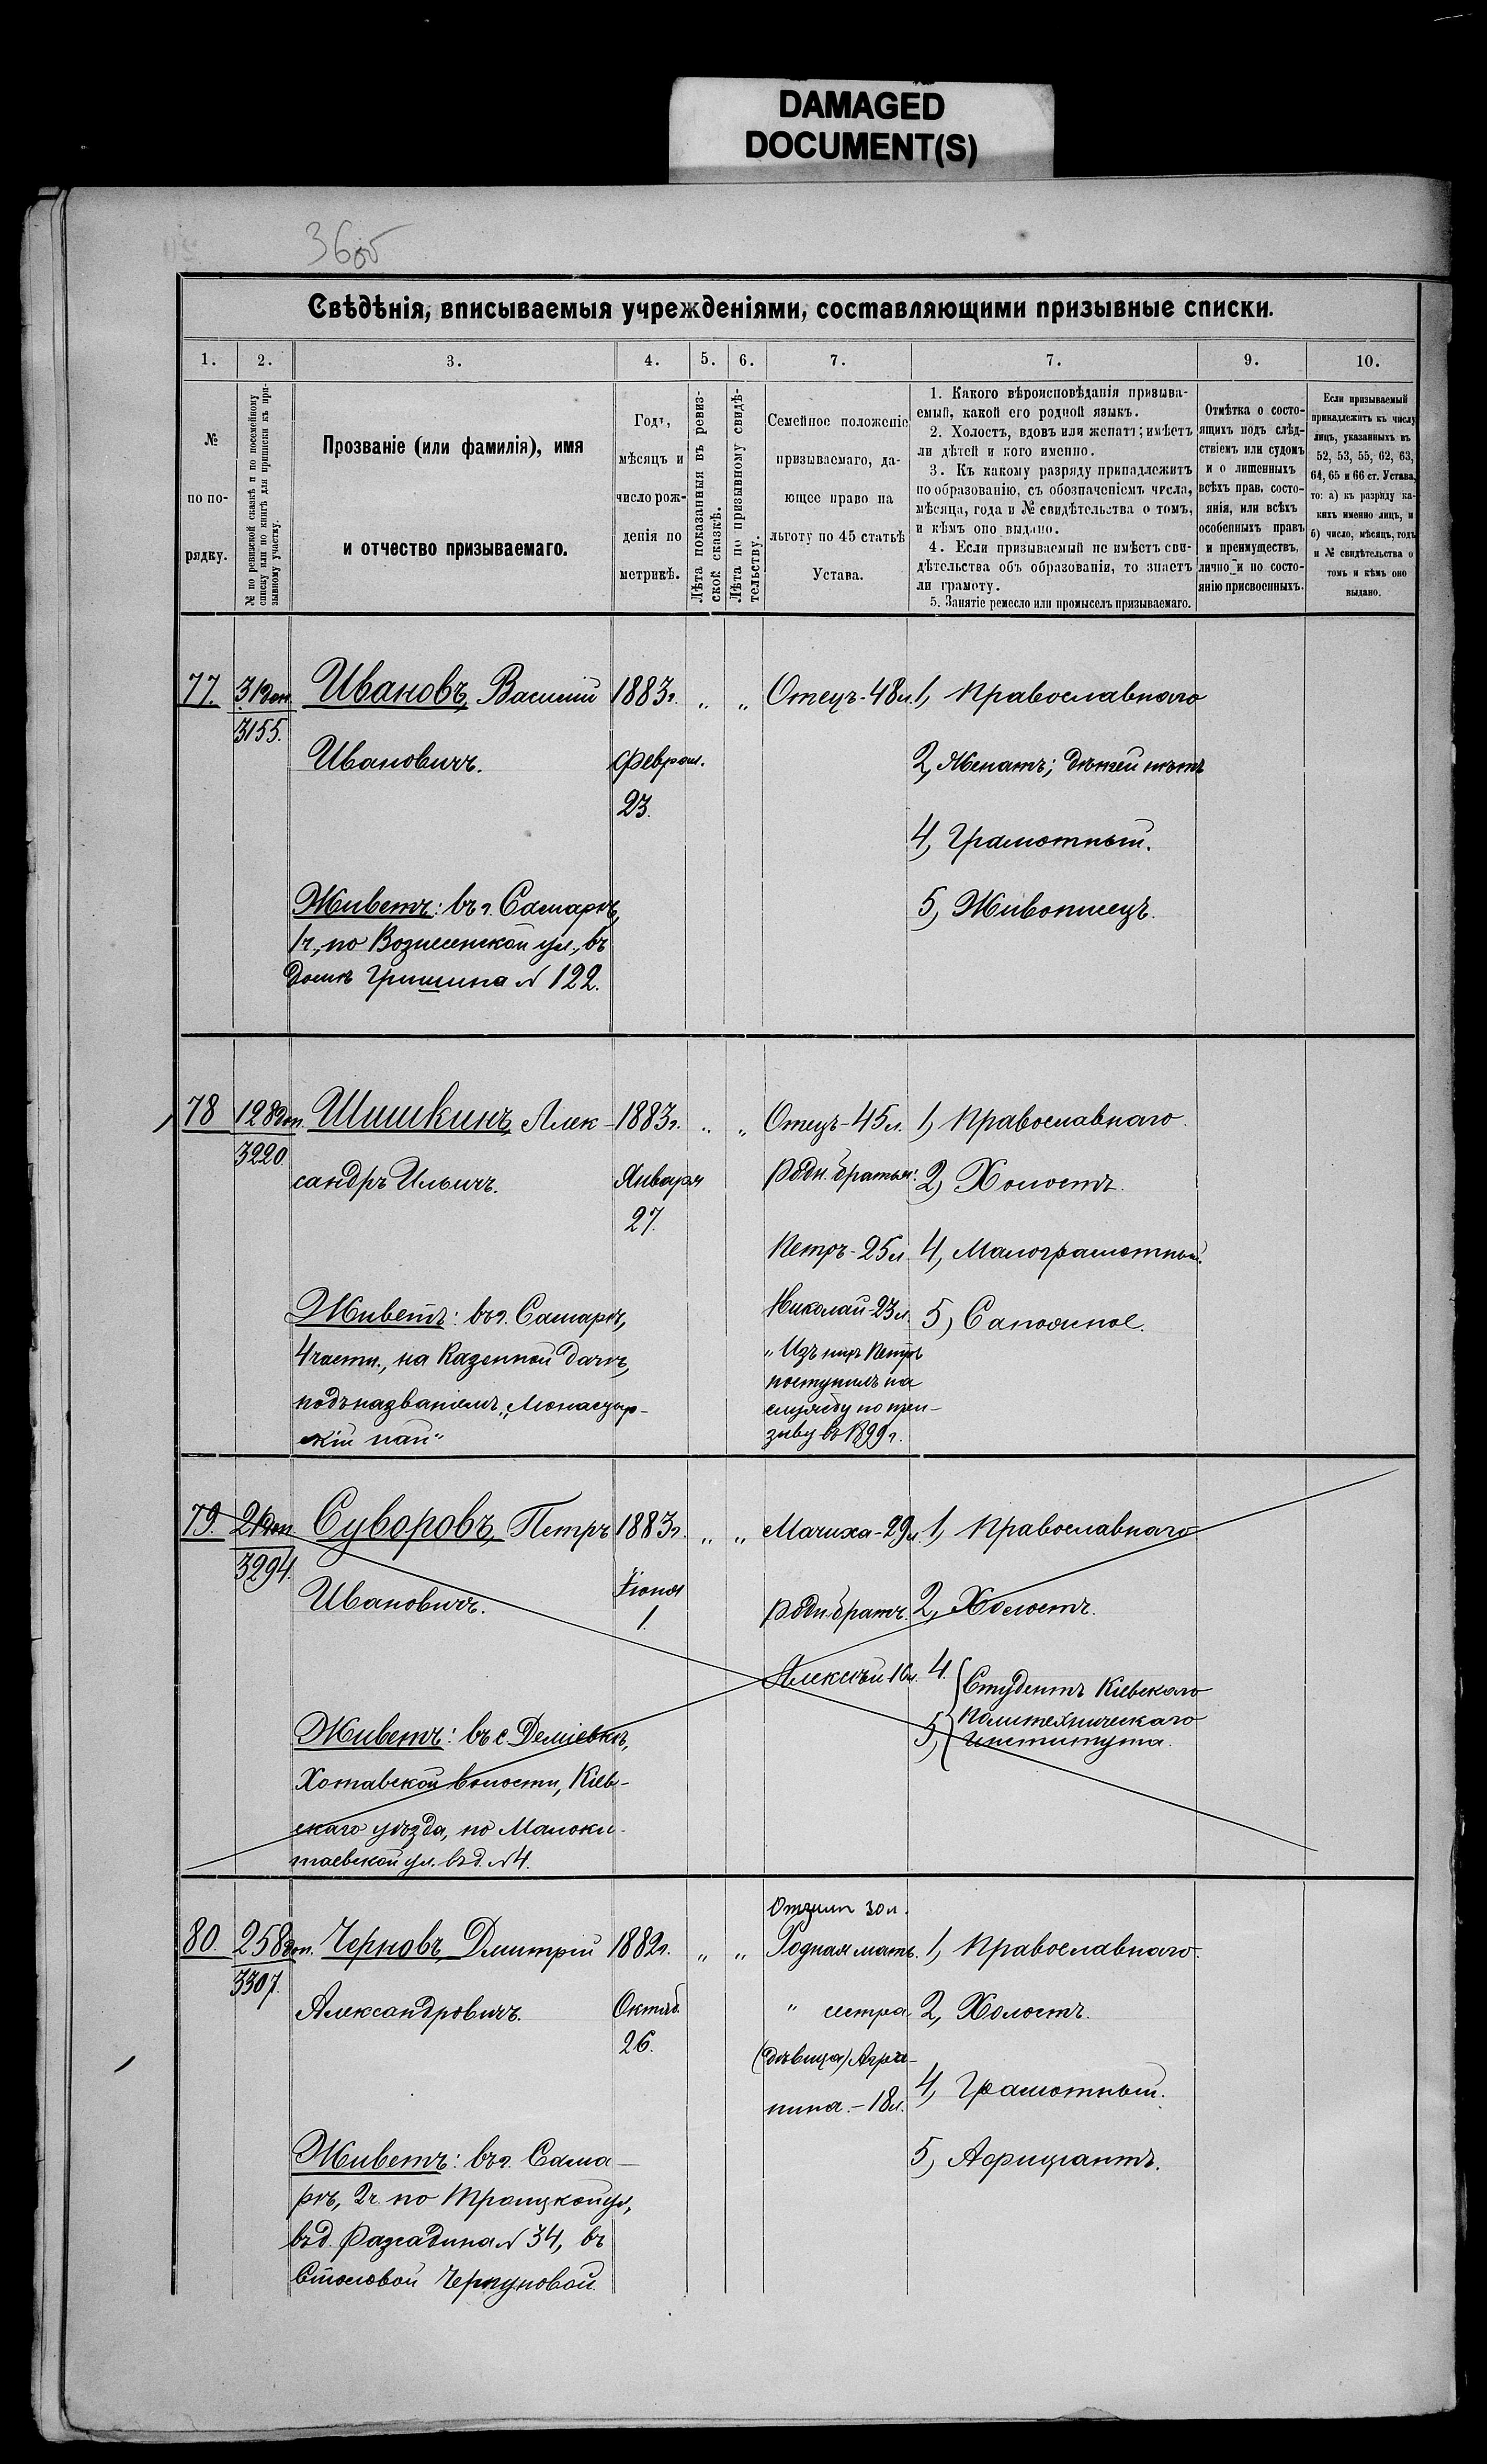 DAMAGED
DOCUMENT(S)
36об
Свѣдѣнія, вписываемыя учрежденіями, составляющими призывные списки.
1. 2. 3. 4. 5. 6. 7. 7. 9. 10.
№
по по-
рядку.
№ по ревизской сказкѣ и по посемейному
списку или по книгѣ для приписки къ при-
зывному участку.
Прозваніе (или фамилія), имя
и отчество призываемаго.
Годъ,
мѣсяцъ и
число рож-
денія по
метрикѣ.
Лѣта показанныя въ ревиз-
ской сказкѣ.
Лѣта по призывному свидѣ-
тельству.
Семейное положеніе
призываемаго, да-
ющее право на
льготу по 45 статьѣ
Устава.
1. Какого вѣроисповѣданія призыва-
емый, какой его родной языкъ.
2. Холостъ, вдовъ или женатъ; имѣетъ
ли дѣтей и кого именно.
3. Къ какому разряду принадлежитъ
по образованію, съ обозначеніемъ числа,
мѣсяца, года и № свидѣтельства о томъ,
и кѣмъ оно выдано.
4. Если призываемый не имѣетъ сви-
дѣтельства объ образованіи, то знаетъ
ли грамоту.
5. Занятіе ремесло или промыселъ призываемаго.
Отмѣтка о состо-
ящихъ подъ слѣд-
ствіемъ или судомъ
и о лишенныхъ
всѣхъ прав. состо-
янія, или всѣхъ
особенныхъ правъ
и преимуществъ,
лично и по состо-
янію присвоенныхъ.
Если призываемый
принадлежитъ къ числу
лицъ, указанныхъ въ
52, 53, 55, 62, 63,
64, 65 и 66 ст. Устава,
то: а) къ разряду ка-
кихъ именно лицъ, и
б) число, мѣсяцъ, годъ
и № свидѣтельства о
томъ и кѣмъ оно
выдано.
77. 31 доп. Ивановъ, Василій 1883г. „ „ Отецъ-48л. 1, Православнаго
3155.
Ивановичъ. Феврал. 2, Женатъ; дѣтей нѣтъ
23.
4, Грамотный.
Живетъ: въ г. Самарѣ, 5, Живописецъ.
1ч., по Вознесенской ул., въ
домѣ Гришина № 122.
78 128 доп. Шишкинъ, Алек- 1883г. „ „ Отецъ-45л. 1, Православнаго.
3220.
сандръ Ильичъ. Января Родн. братья: 2, Холостъ.
27.
Петръ-25л. 4, Малограмотный.
Живетъ: въ г. Самарѣ, Николай-23л. 5, Сапожное.
4 части, на Казенной дачѣ, „Изъ нихъ Петръ
поступилъ на
подъ названіемъ „Монастыр- службу по при-
скій пай" зыву въ 1899г.
79. 21 доп. Суворовъ, Петръ 1883г. „ „ Мачиха-29л. 1, Православнаго
3294.
Ивановичъ. Іюня Родн. братъ. 2, Холостъ.
1.
Алексѣй 16л. 4. Студентъ Кіевскаго
Политехническаго
5, Института.
Живетъ: въ с. Деміевкѣ,
Хотавской волости, Кіев-
скаго уѣзда, по Малоки-
таевской ул. въ д. №4.
Отчим 30л.
80. 258 доп. Черновъ, Дмитрій 1882г. „ „ Родная мать. 1, Православнаго.
3307.
Александровичъ. Октяб. " сестра 2, Холостъ.
26.
(дѣвица) Агра-
пина.-18л. 4, Грамотный.
Живетъ: въ г. Сама- 5, Афиціантъ.
рѣ, 2ч. по Троицкой ул,
въ д. № 34, въ
Столовой Чернуновой.